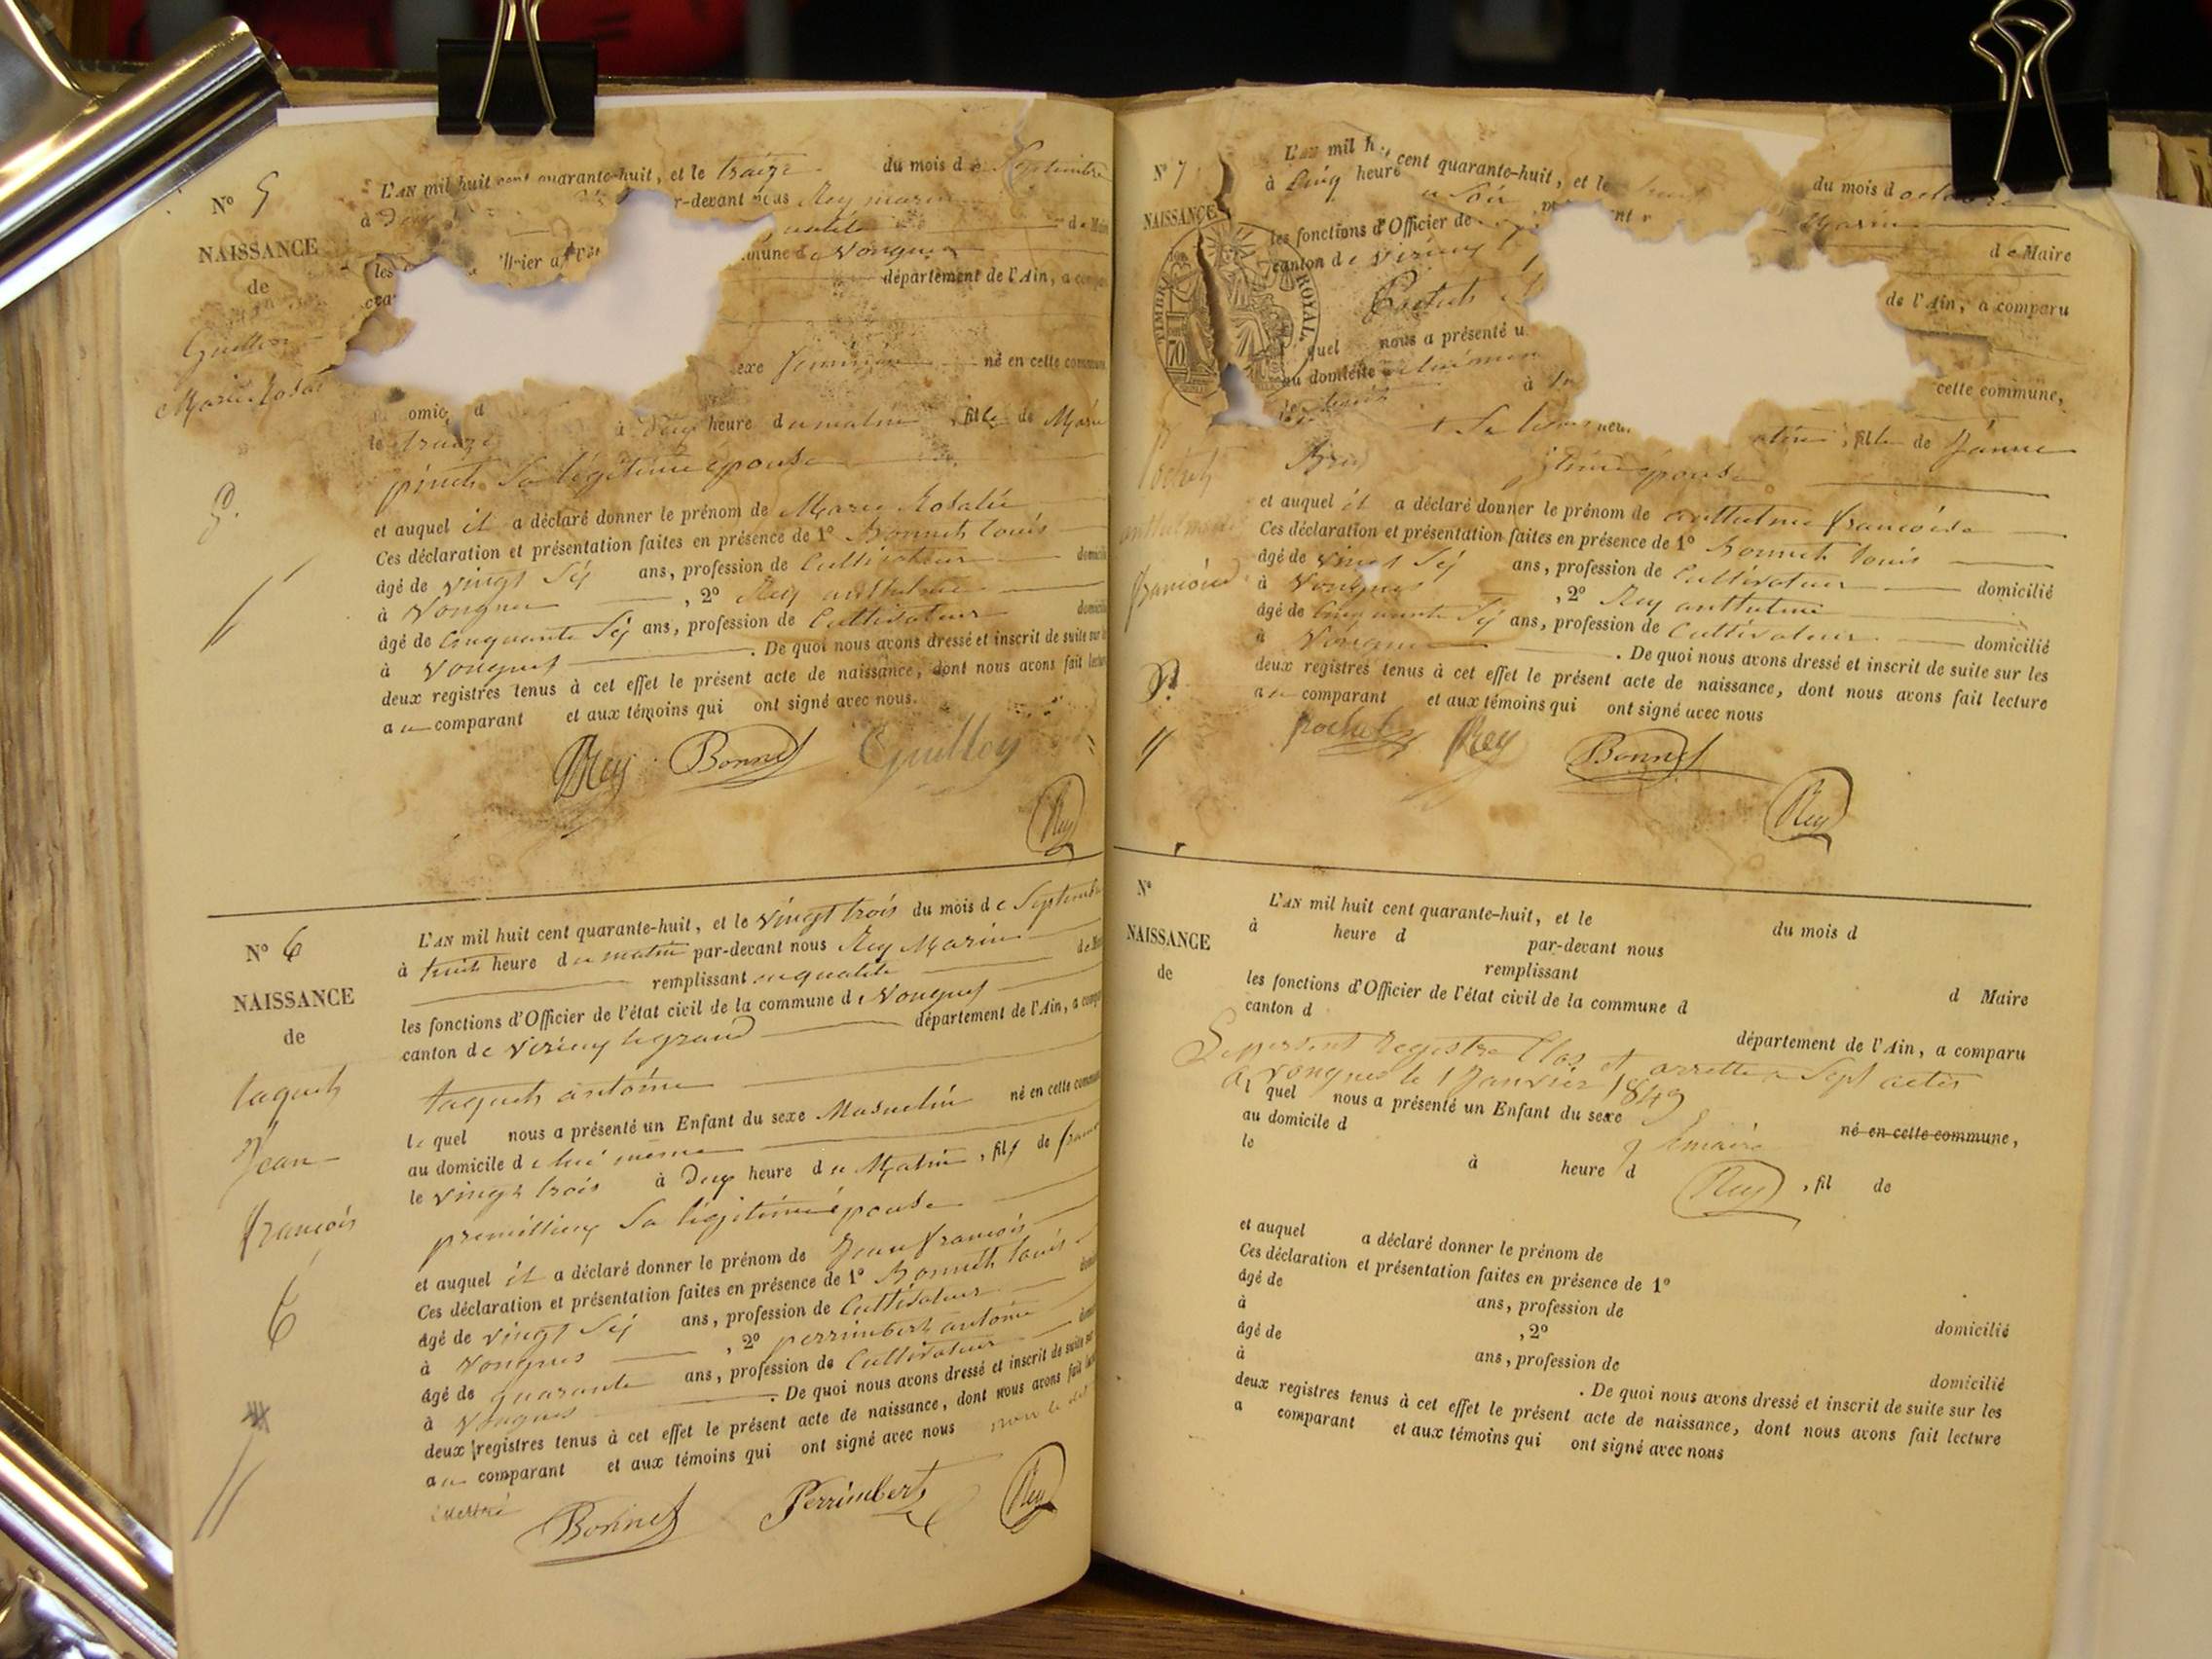 N° 5
NAISSANCE
de
Guillon
Marie Rosal
L'AN mil huit cent quarante-huit, et le traize du mois de Septembre
à r-devant nous Rey marin
qualité de M
les mune de Vongnes
département de l'Ain, a comp
exe feminin né en cette commun
omic d
le traize à Deux heure du matin, fille de Marie
pinet Sa légitime épouse
et auquel il a déclaré donner le prénom de Marie Rosalie
Ces déclaration et présentation faites en présence de 1° Bonnet louis
âgé de vingt Sej ans, profession de Cultivateur domicilié
à Vongnes , 2° Rey anthelme
âgé de Cinquante Sej ans, profession de Cultivateur domicilié
à Vongnes . De quoi nous avons dressé et inscrit de suite sur l
deux registres tenus à cet effet le présent acte de naissance, dont nous avons fait lectu
au comparant et aux témoins qui ont signé avec nous.
Rey Bonnet Guilloy
Rey
N° 6
NAISSANCE
de
taquet
Jean
françois
6
L'AN mil huit cent quarante-huit, et le vingt trois du mois de Septemb
à huit heure du matin par-devant nous Rey Marin
remplissant en qualité de M
les fonctions d'Officier de l'état civil de la commune de Vongnes
canton de virieu le grand département de l'Ain, a comp
taquet antoine
le quel nous a présenté un Enfant du sexe Masculin né en cette commun
au domicile de lui même
le vingt trois à Deux heure du Matin, fils de franc
premillieu Sa légitime épouse
et auquel il a déclaré donner le prénom de Jean françois
Ces déclaration et présentation faites en présence de 1° Bonnet louis
âgé de vingt Sej ans, profession de Cultivateur dom
à Vongnes , 2° perrimbert antoine
âgé de quarante ans, profession de Cultivateur dom
à Vongnes . De quoi nous avons dressé et inscrit de suite sur
deux registres tenus à cet effet le présent acte de naissance, dont nous avons fait lec
au comparant et aux témoins qui ont signé avec nous non le
Bonnet Perrimbert Rey
N° 7
NAISSANCE
TIMBRE ROYAL
70
françoise
L'AN mil h cent quarante-huit, et le du mois d octobre
à Cinq heure du Soir
Marin
les fonctions d'Officier de d e Maire
canton de virieu
de l'Ain, a comparu
Pochet
quel nous a présenté u
au domicile de lui même cette commune,
le à
, fille de Janne
épouse
et auquel il a déclaré donner le prénom de anthelme françoise
Ces déclaration et présentation faites en présence de 1° Bonnet louis
âgé de vingt Sej ans, profession de Cultivateur domicilié
à Vongnes , 2° Rey anthelme
âgé de Cinquante Sej ans, profession de Cultivateur domicilié
à Vongnes . De quoi nous avons dressé et inscrit de suite sur les
deux registres tenus à cet effet le présent acte de naissance, dont nous avons fait lecture
au comparant et aux témoins qui ont signé avec nous
pochet Rey Bonnet
Rey
N°
NAISSANCE
de
L'AN mil huit cent quarante-huit, et le du mois d
à heure d par-devant nous
remplissant d Maire
les fonctions d'Officier de l'état civil de la commune d
canton d département de l'Ain, a comparu
Le present Registre Clos et arretté a Sept actes
A vongnes le 1 Janvier 1849
l quel nous a présenté un Enfant du sexe né en cette commune,
au domicile d
le à heure d , fil de
Rey
et auquel a déclaré donner le prénom de
Ces déclaration et présentation faites en présence de 1°
âgé de ans, profession de domicilié
à , 2°
âgé de ans, profession de domicilié
à . De quoi nous avons dressé et inscrit de suite sur les
deux registres tenus à cet effet le présent acte de naissance, dont nous avons fait lecture
a comparant et aux témoins qui ont signé avec nous